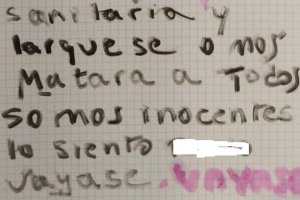 sanitaria y
larguese o nos
Matara a Todos
somos inocentes
lo siento
vayase. vayase